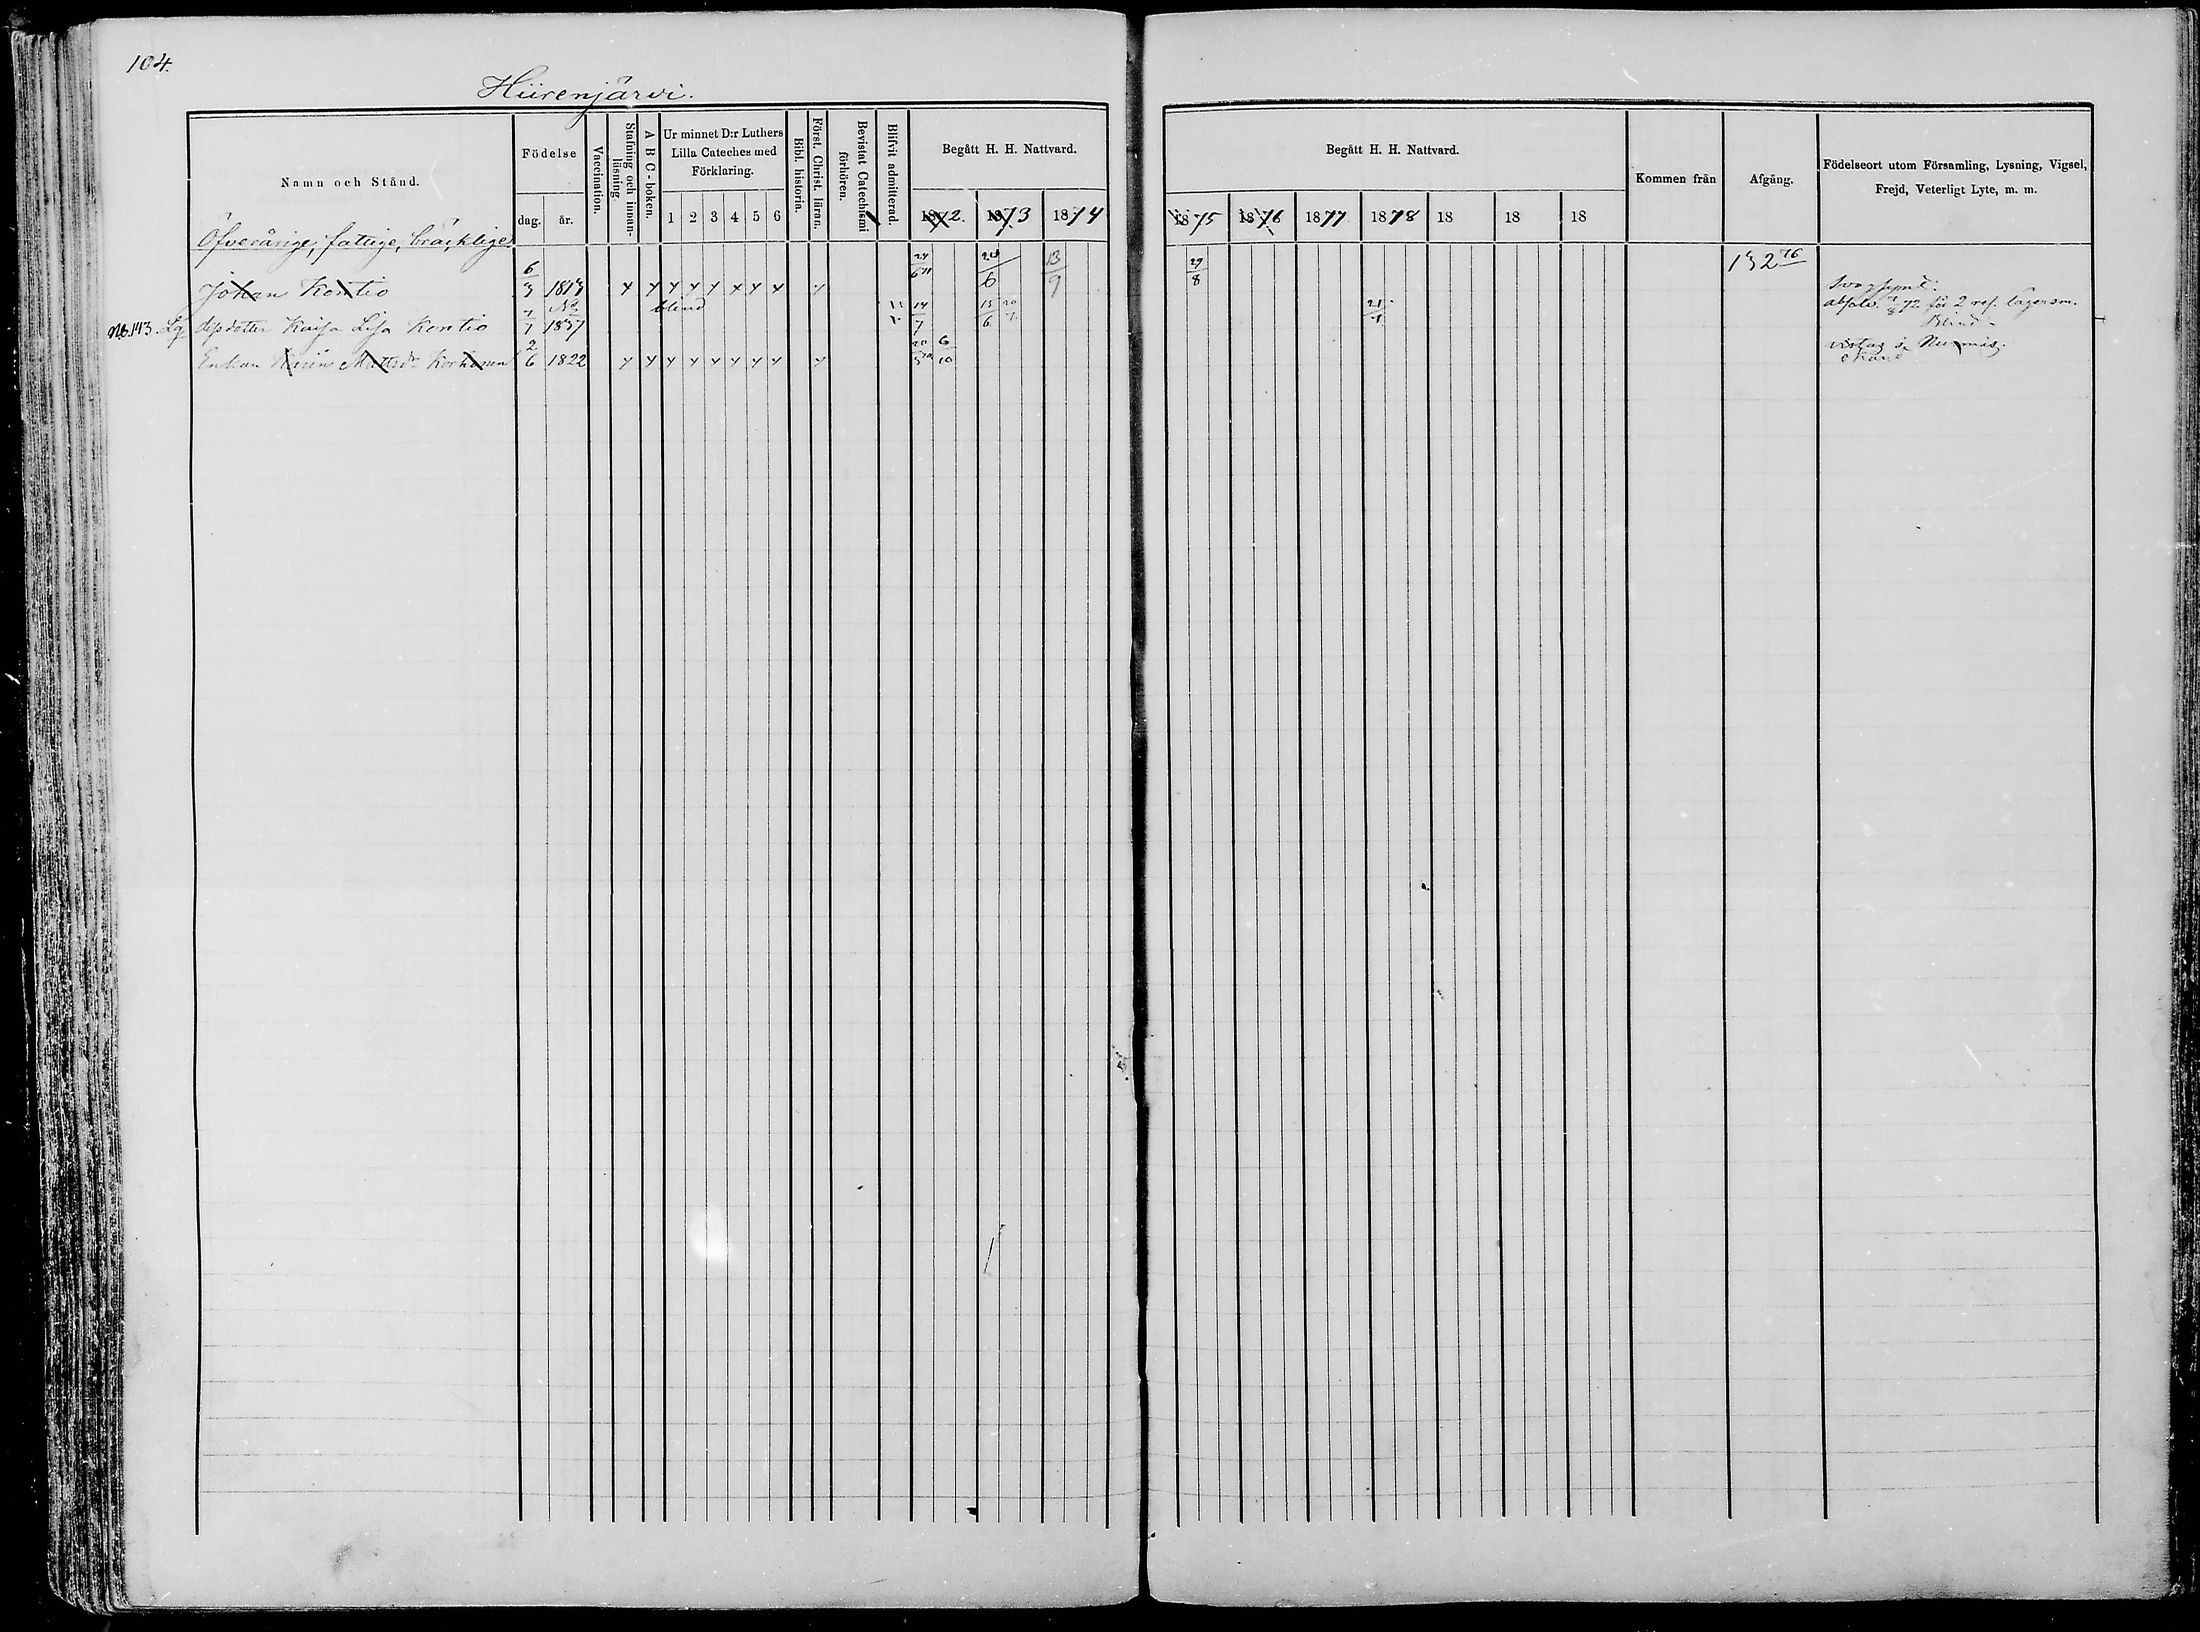 104.
Hiirenjärvi.
Namn och Stånd.
Födelse
dag.
år.
Vaccination.
Stafning och innan-
läsning
A B C - boken.
Ur minnet D:r Luthers
Lilla Cateches med
Förklaring.
1 2 3 4 5 6
Bibl. historia.
Först. Christ. läran.
Bevistat Catechismi
förhören.
Blifvit admitterad.
Begått H. H. Nattvard.
1872. 1873 1874
Begått H. H. Nattvard.
1875 1876 1877 1878 18 18 18
Kommen från
Afgång.
Födelseort utom Församling, Lysning, Vigsel,
Frejd, Veterligt Lyte, m. m.
Öfverårige, fattige, bräcklige
Johan Kontio 6/3 1813 24/6 24/6 13/9 29/8 132 76 Svagsynt.
No. 143. Kaisa Lisa Kontio 7/7 1837 blind 14/7 15/6 21/4 72 för 2 res. lägersm.
Blind
Enkan Karin Mattsdr Korhonen 2/6 1822 6/10 Nurmis.